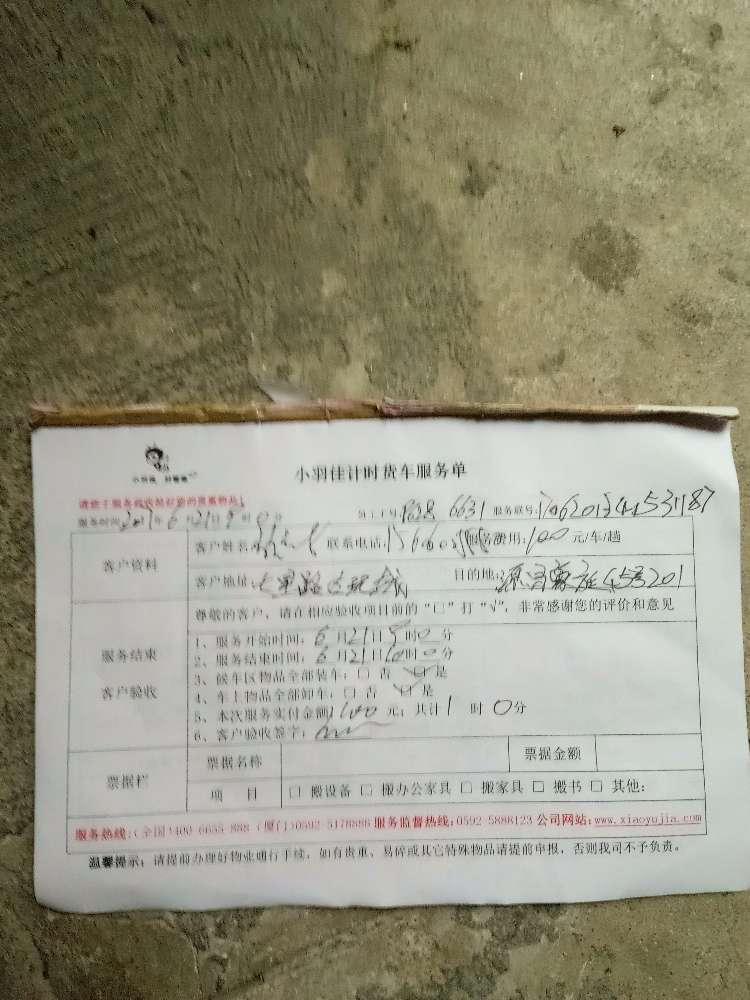 小羽佳计时货车服务单
小羽佳 好管家
服务时间:2017年6月21日9时0分 员工工号 6631 服务联号:
客户资料
客户姓名: 联系电话: 服务费用:100元/车/趟
客户地址: 目的地: 45号201
尊敬的客户,请在相应验收项目前的“□”打“√”,非常感谢您的评价和意见
服务结束
客户验收
1、服务开始时间:6月21日9时0分
2、服务结束时间:6月21日10时0分
3、候车区物品全部装车:□ 否 □ 是
4、车上物品全部卸车:□ 否 □ 是
5、本次服务实付金额:100元;共计1时0分
6、客户验收签字:
票据栏
票据名称 票据金额
项 目 □ 搬设备 □ 搬办公家具 □ 搬家具 □ 搬书 □ 其他:
服务热线:(全国)400-6655-888 (厦门)0592-5178888 服务监督热线:0592-5888123 公司网站:www.xiaoyujia.com
温馨提示:请提前办理好物业通行手续,如有贵重、易碎或其它特殊物品请提前申报,否则我司不予负责。